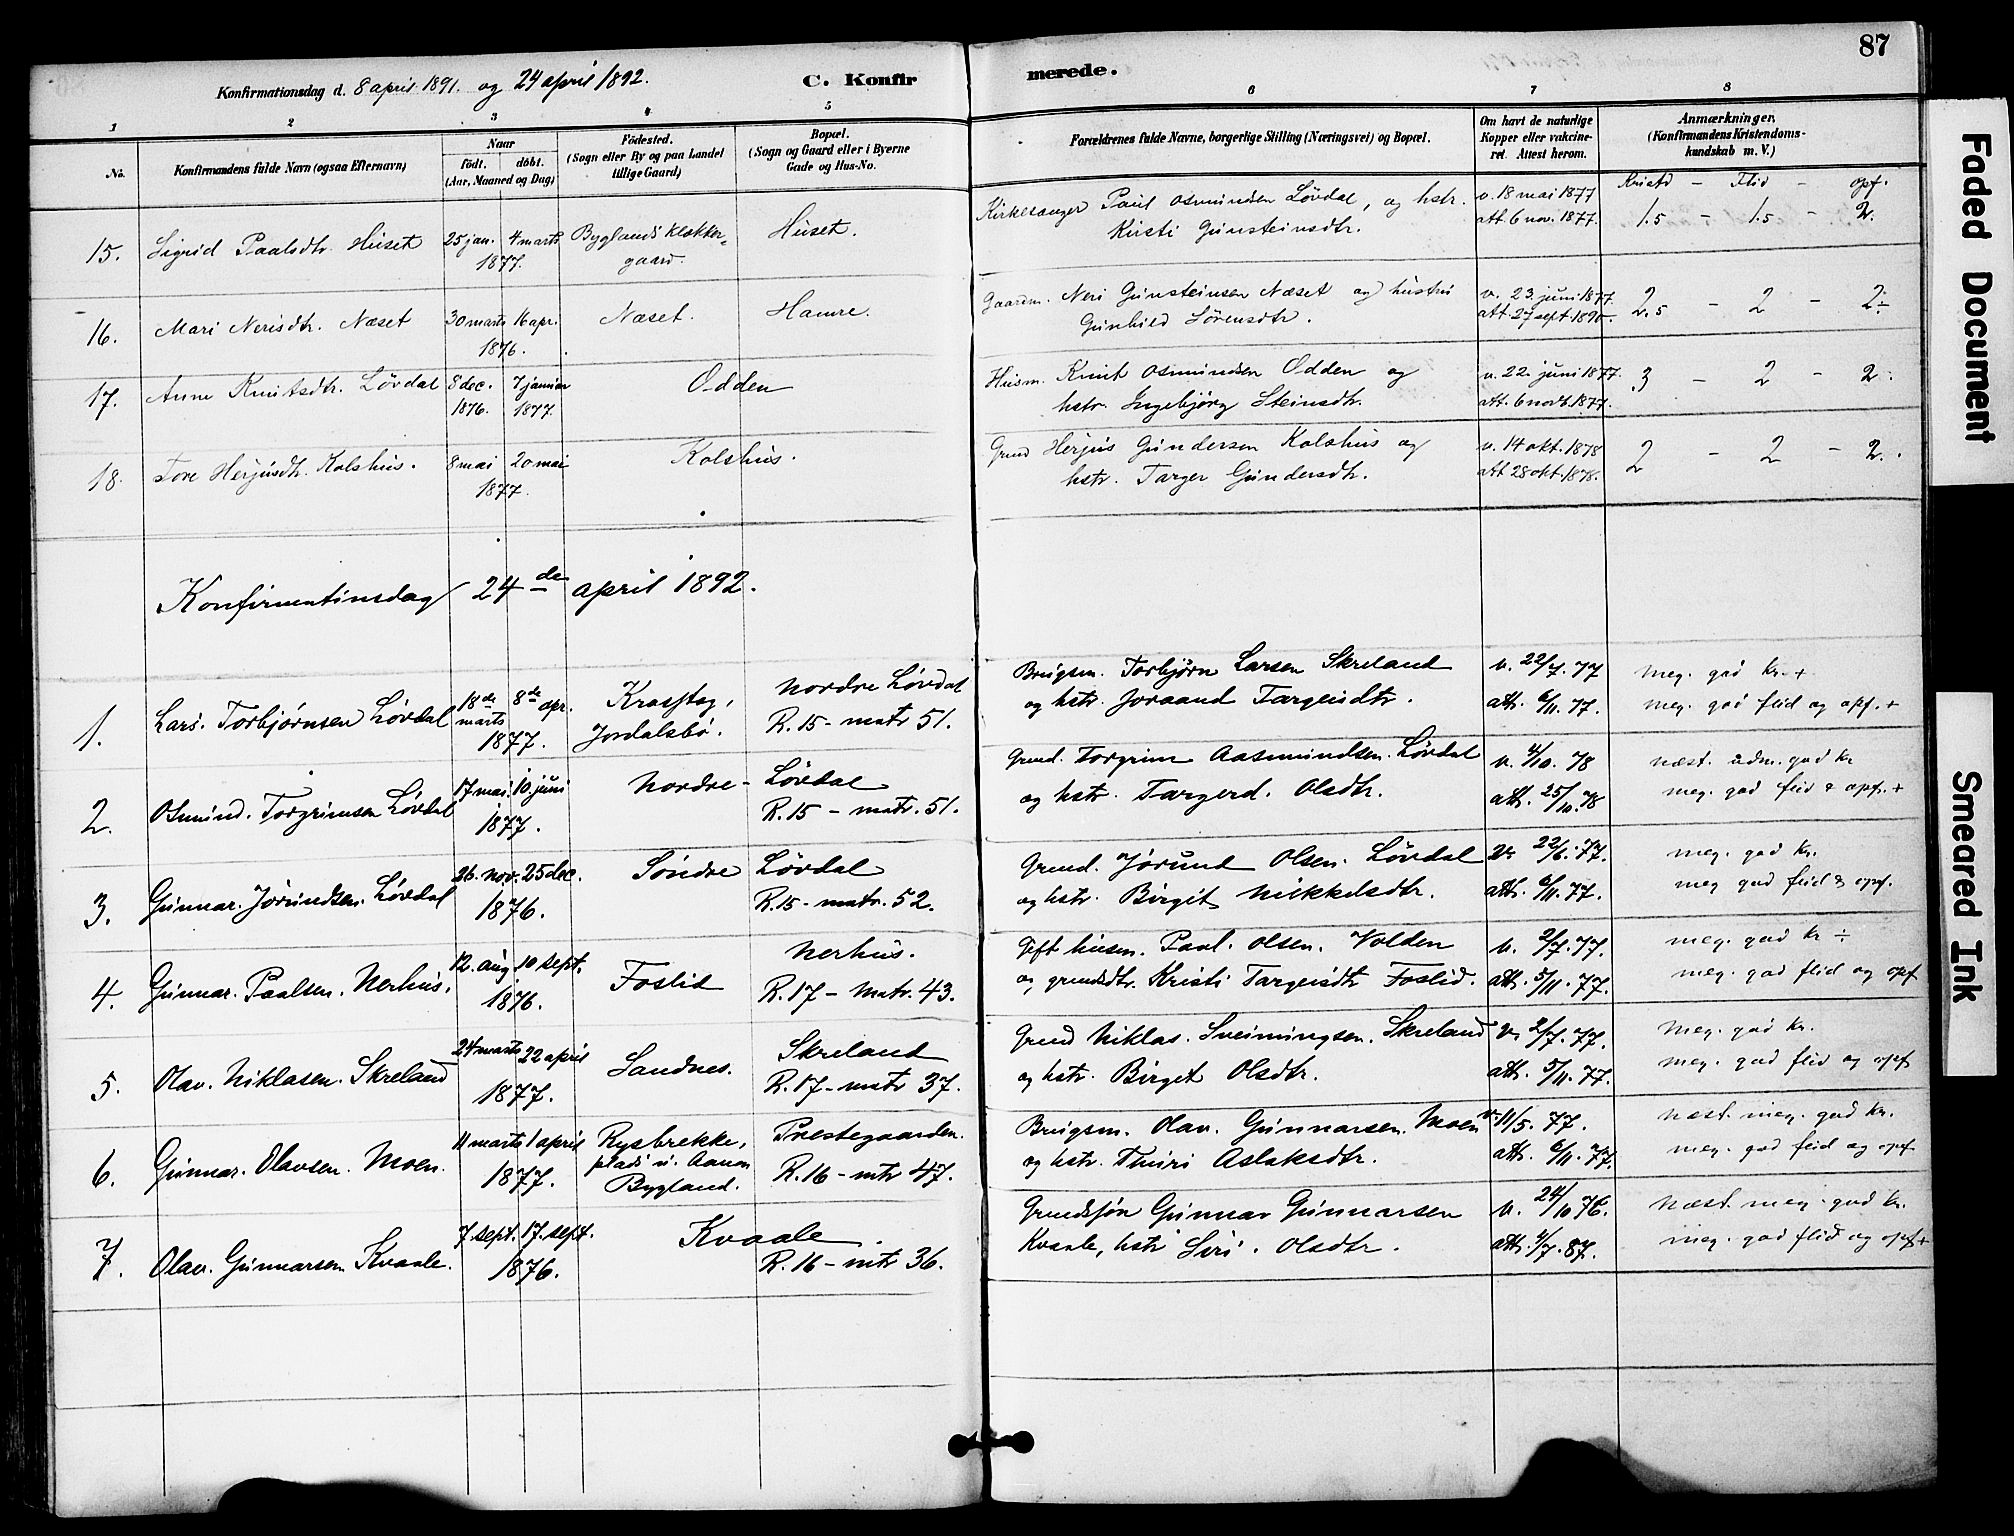 87
Konfirmationsdag d. 8 april 1891. og 24 april 1892.
C. Konfirmerede.
1 2 3 4 5 6 7 8
No.
Konfirmandens fulde Navn (ogsaa Efternavn)
Naar
födt. döbt.
(Aar, Maaned og Dag)
Födested.
(Sogn eller By og paa Landet
tillige Gaard)
Bopæl.
(Sogn og Gaard eller i Byerne
Gade og Hus-No.
Forældrenes fulde Navne, borgerlige Stilling (Næringsvei) og Bopæl.
Om havt de naturlige
Kopper eller vakcine-
ret. Attest herom.
Anmærkninger.
(Konfirmandens Kristendoms-
kundskab m. V.)
Kristd – Flid – opf.
15. Sigrid Paalsdtr. Huset 25 jan. 4 marts
1877.
Byglands klokker-
gaard.
Huset.
Kirkesanger Paul Osmundsen Lövdal, og hstr.
Kirsti Gunsteinsdtr.
v. 18 mai 1877
att 6 nov. 1877.
1.5 – 1.5 – 2.
16. Mari Nerisdtr. Næset 30 marts 16 apr.
1876.
Næset. Hamre.
Gaardm. Neri Gunsteinsen Næset og hustru
Gunhild Sörensdtr.
v. 23. juni 1877.
att. 27 sept. 1890.
2.5 – 2 – 2÷
17. Anne Knutsdtr. Lövdal 8 dec. 7 januar
1876. 1877.
Odden
Husm. Knut Osmundsen Odden og
hstr. Ingebjörg Steinsdtr.
v. 22. juni 1877.
att. 6 novb. 1877.
3 – 2 – 2.
18. Tore Herjusdtr. Kolshus. 8 mai 20 mai
1877.
Kolshus.
Grund Herjus Gundersen Kolshus og
hstr. Targer Gundersdtr.
v. 14 okt. 1878
att 28 okt. 1878.
2 – 2 – 2.
Konfirmationsdag 24de april 1892.
1. Lars. Torbjørnsen Løvdal 18de marts 8de apr.
1877.
Jordalsbø.
Nordre Løvdal
R. 15 – matr 51.
Brugsm. Torbjørn Larsen Skreland
og hstr. Joraand Targeisdtr.
v. 22/7. 77
att. 6/11. 77.
meg. god kr. +
meg. god flid og opf. +
2. Osmund. Torgrimsen Løvdal 17 mai. 10 juni
1877.
Nordre – Løvdal
R. 15 – matr. 51.
Grund. Torgrim Aasmundsen. Løvdal
og hstr. Targerd. Olsdtr.
v. 4/10. 78
att. 25/10. 78
næst. udm. god kr
meg. god flid & opf. +
3. Gunnar. Jørundsen. Løvdal 26. nov. 25 dec.
1876.
Söndre Løvdal
R. 15 – matr. 52.
Grund. Jørund Olsen. Løvdal
og hstr. Birgit Mikkelsdtr.
v. 22/6. 77.
att. 6/11. 77.
meg. god kr.
meg god flid & opf.
4. Gunnar. Paalsen. Nerhus. 12. aug 10 sept.
1876.
Foslid
Nerhus.
R. 17 – matr. 43.
Gift husm. Paul. Olsen. Volden
og grundsdtr. Kristi Targeisdtr Foslid.
v. 2/7. 77.
att. 5/11. 77.
meg. god kr ÷
meg. god flid og opf
5. Olav. Niklasen. Skreland 24 marts 22 april
1877.
Sandnes.
Skreland
R. 17 – matr 37.
Grund Niklas. Sveinungsen. Skreland
og hstr. Birgit Olsdtr.
v. 2/7. 77.
att. 5/11. 77.
meg. god kr.
meg. god flid og opf
6. Gunnar. Olavsen. Moen. 11 marts 1 april
1877.
Rysbrekke,
plads u. Aanon
Bygland.
Prestegaarden.
R. 16 – mtr 47.
Brugsm. Olav. Gunnarsen. Moen
og hstr. Thuri Aslaksdtr.
v. 11/5. 77.
att. 6/11. 77.
næst. meg. god kr.
meg. god flid og opf
7. Olav. Gunnarsen Kvaale. 7 sept. 17. sept.
1876.
Kvaale.
R. 16 – mtr 36.
Grundsjön Gunnar Gunnarsen
Kvaale, hstr Siri. Olsdtr.
v. 24/10 76.
att. 4/7. 87.
næst. meg. god kr.
meg. god flid og opf +
Faded Document
Smeared Ink